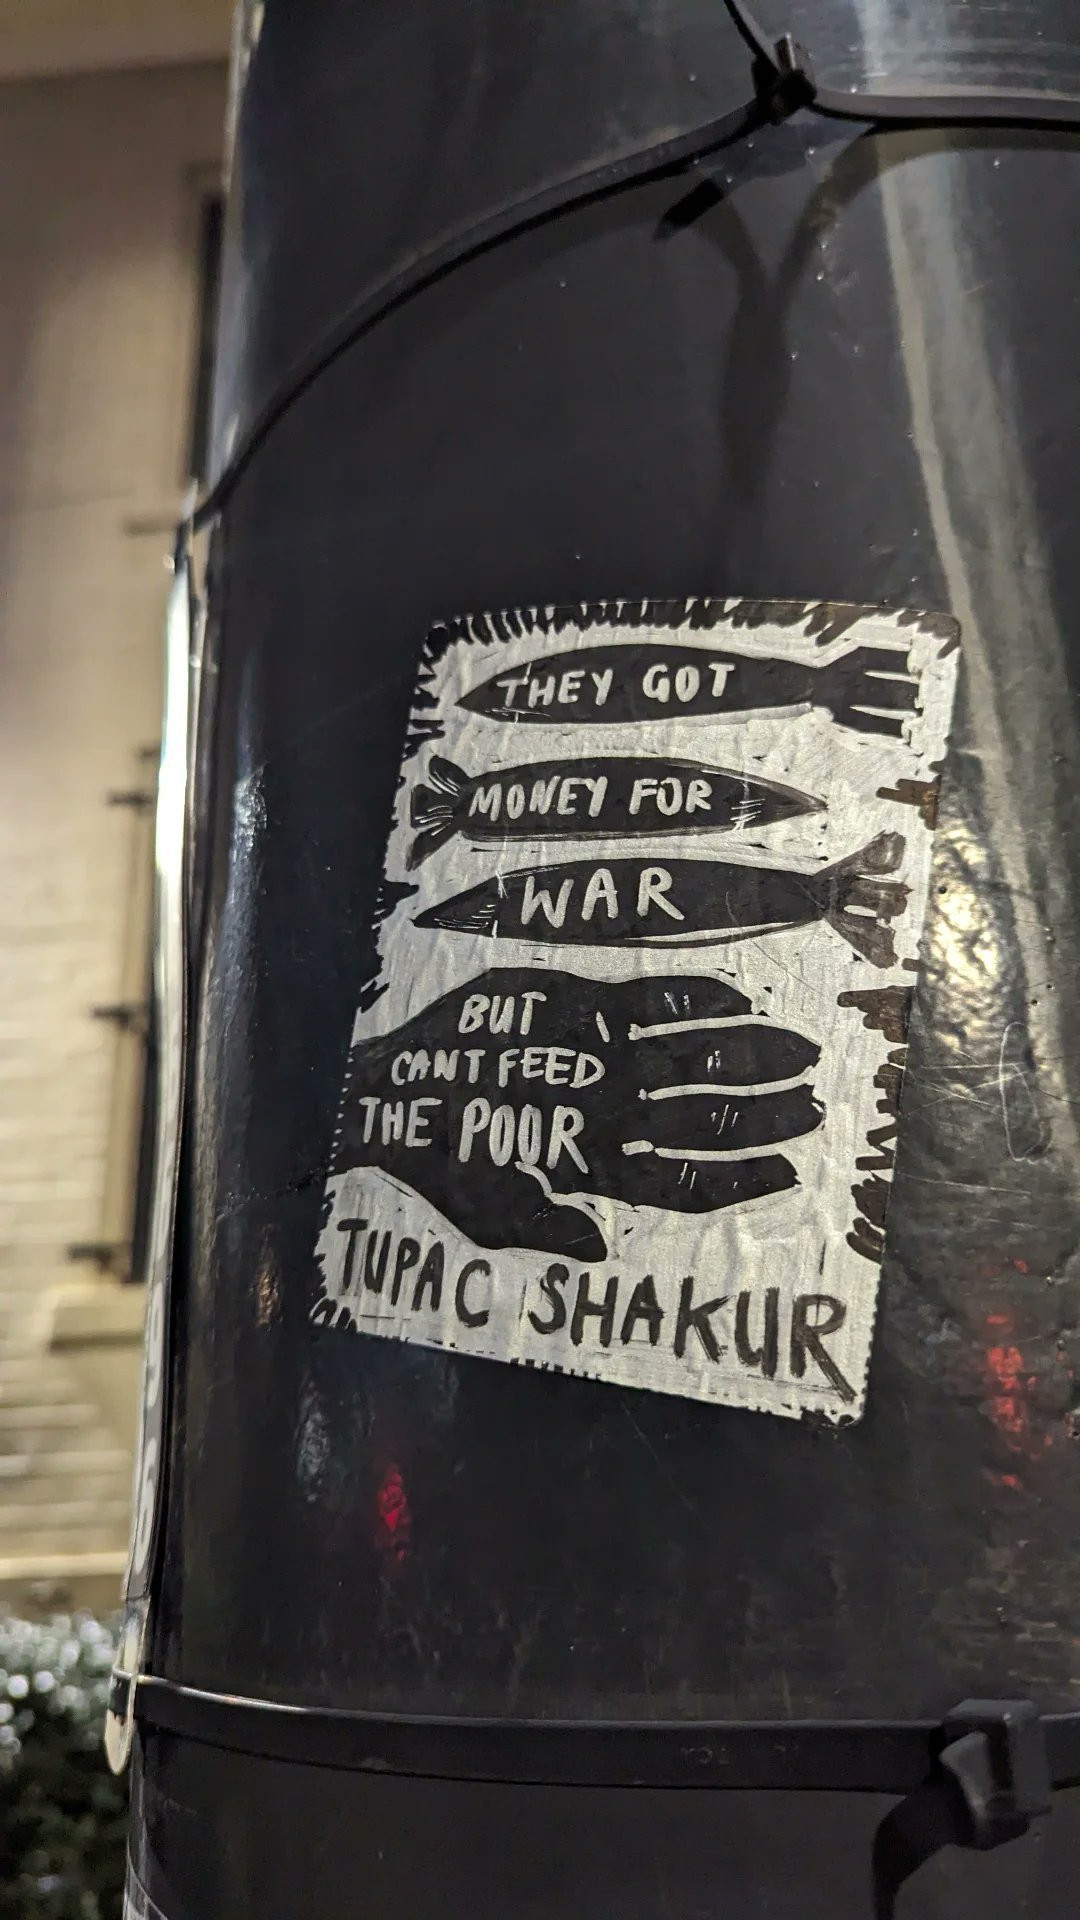 THEY GOT
MONEY FOR
WAR
BUT
CANT FEED
THE POOR
TUPAC SHAKUR